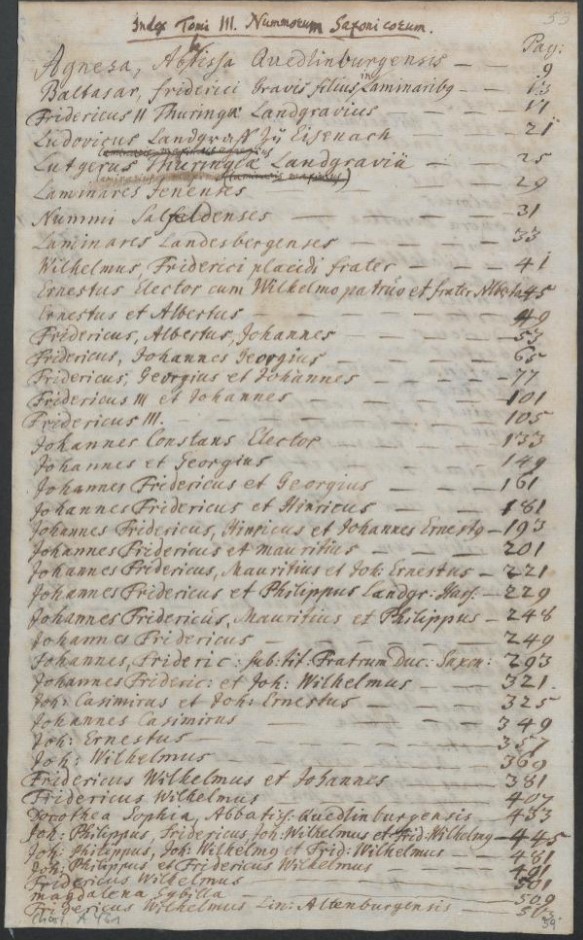 Index Tomi III. Nummorum Saxonicorum.
Pag:
Agnesa, Abtissa Quedlinburgensis — — 9
Baltasar, friderici Gravis filius in Laminaribg — 13
Fridericus II Thuringæ Landgravius — — 17
Ludovicus Landgraff Zÿ Eisenach — — 21
Lutgerus Thuringiæ Landgravii — — 25
Laminares Jenenses — — 29
Nummi Salfeldenses — — — 31
Laminares Landesbergenses — — — 33
Wilhelmus, Friderici placidi frater — — — 41
Ernestus Elector cum Wilhelmo patrúo et fratre 45
Ernestus et Albertus — — — 49
Fridericus, Albertus, Johannes — — — 53
Fridericus, Johannes Georgius — — — 65
Fridericus, Georgius et Johannes — — — 77
Fridericus III et Johannes — — — 101
Fridericus III. — — — 105
Johannes Constans Elector — — — 133
Johannes et Georgius — — — 149
Johannes Fridericus et Georgius — — — 161
Johannes Fridericus et Hinricus — — — 181
Johannes Fridericus, Hinricus et Johannes Ernestg — 193
Johannes Fridericus et Mauritius — — — 201
Johannes Fridericus, Mauritius et Joh: Ernestus — 221
Johannes Fridericus et Philippus Landgr: Hass: — 229
Johannes Fridericus, Mauritius et Philippus — 248
Johannes Fridericus — — — 249
Johannes, Frideric: sub: tit: Fratrum Duc: Saxon: 293
Johannes Frideric: et Joh: Wilhelmus — — 321
Joh: Casimirus et Joh: Ernestus — — — 325
Johannes Casimirus — — — 349
Joh: Ernestus — — — 357
Joh: Wilhelmus — — — 369
Fridericus Wilhelmus et Johannes — — — 381
Fridericus Wilhelmus — — — 407
Dorothea Sophia, Abbatiss: Quedlinburgensis — 433
Joh: Philippus, Fridericus Joh: Wilhelmus et Frid: Wilhelmg — 445
Joh: Philippus, Joh: Wilhelmg et Frid: Wilhelmus — 481
Joh: Philippus et Fridericus Wilhelmus — — 491
Fridericus Wilhelmus — — — 501
Magdalena Sybilla — — — 509
Fridericus Wilhelmus Lin: Altenburgensis — —